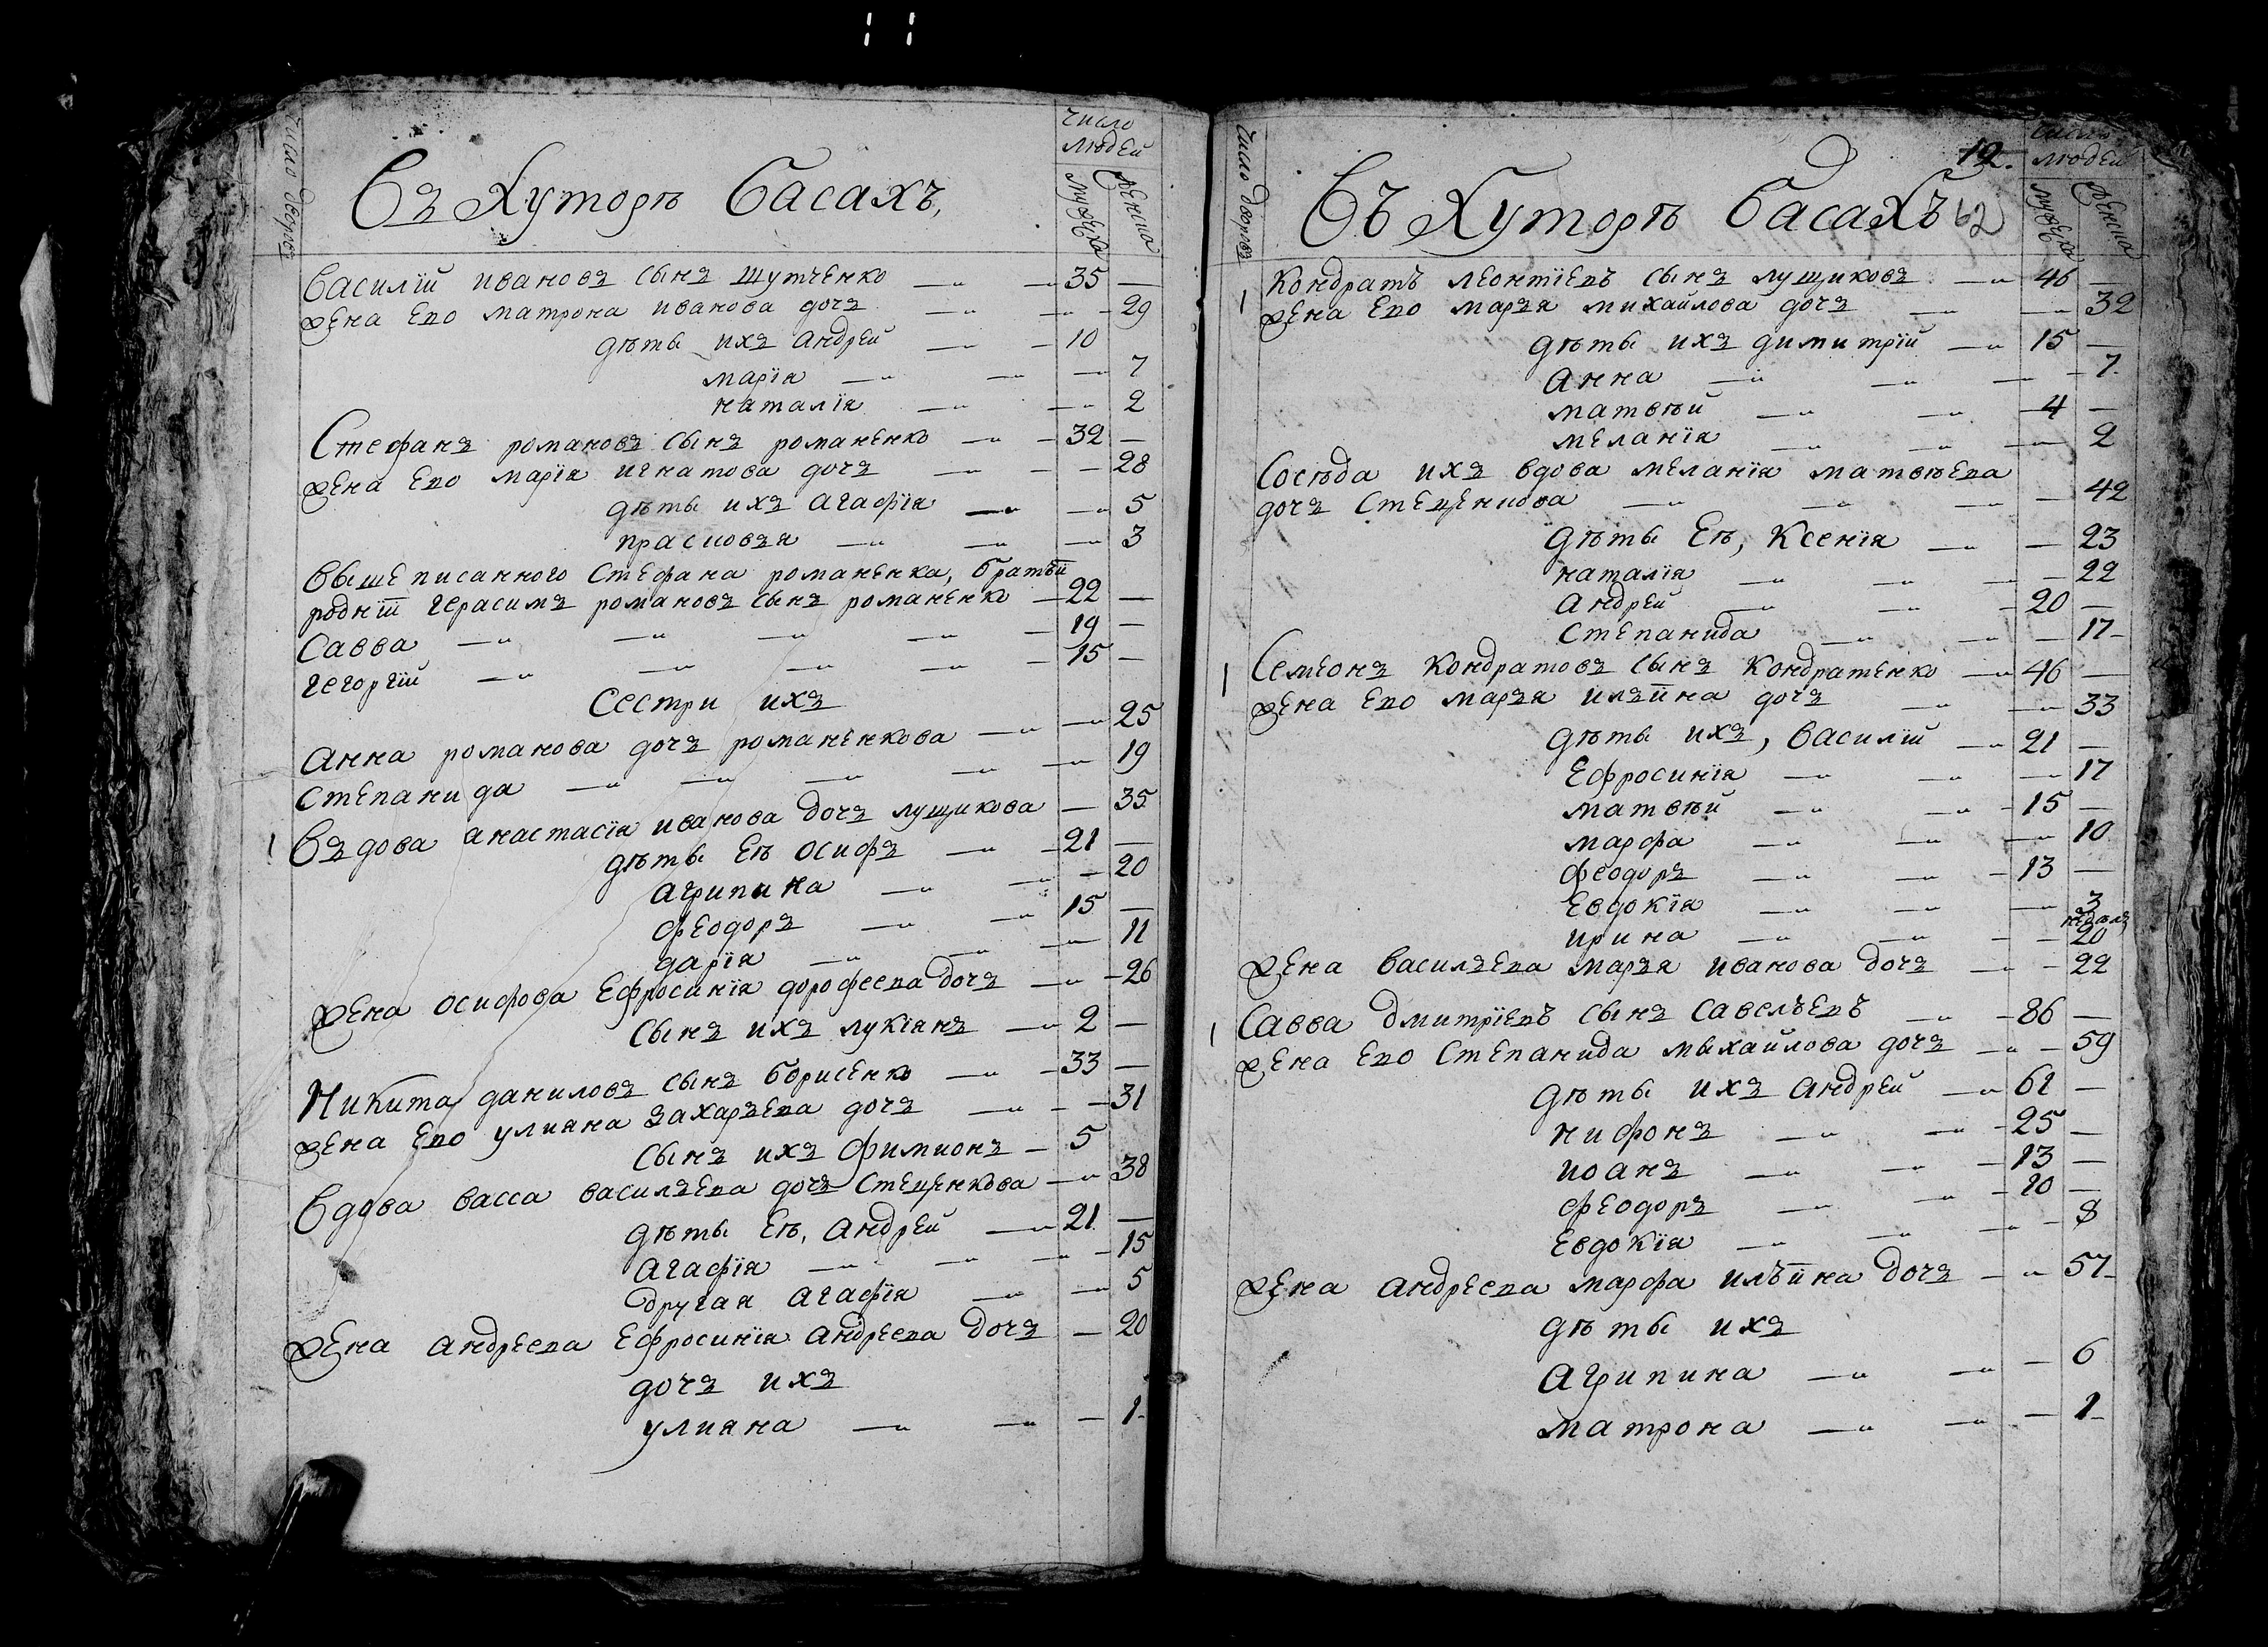 число дворовъ
число
людей
мужеска
женска
Въ Хуторѣ Басахъ,
Василїй Ивановъ сынъ Шутченко 35
жена его Матрона Иванова дочъ 29
дѣты ихъ Андрей 10
Марїя 7
Наталїя 2
Стефанъ Романовъ сынъ Романенко 32
жена его Марїя Игнатова дочъ 28
дѣты ихъ Агафїя 5
Прасковъя 3
Вышеписанного Стефана Романенка, братьи
роднїи Герасимъ Романовъ сынъ Романенко 22
Савва 19
Гегоргїй 15
Сестри ихъ
Анна Романова дочъ Романенкова 25
Степанида 19
1 Въдова Анастасїя Иванова дочъ Лущикова 35
дѣты еѣ Осифъ 21
Агрипина 20
Феодоръ 15
Дарїя 11
жена Осифова Ефросинїя Дорофеева дочъ 26
Сынъ ихъ Лукїянъ 2
Никита Даниловъ сынъ Борисенко 33
жена его Улияна Захаръева дочъ 31
Сынъ ихъ Фимионъ 5
Вдова Васса Василъева дочъ Стеценкова 38
дѣты еѣ, Андрей 21
Агафїя 15
другая Агафїя 5
жена Андреева Ефросинїя Андреева дочъ 20
дочъ ихъ
Улияна 1
число дворовъ
12.
число
людей
мужеска
женска
Въ Хуторѣ Басахъ 62
1 Кондратъ Леонтїевъ сынъ Лущиковъ 46
жена его Маръя Михайлова дочъ 32
дѣты ихъ Димитрїй 15
Анна 7
Матвѣй 4
Меланїя 2
Сосѣда ихъ вдова Меланїя Матвѣева
дочъ Стеценкова 42
дѣты еѣ, Ксенїя 23
Наталїя 22
Андрей 20
Степанида 17
1 Семїонъ Кондратовъ сынъ Кондратенко 46
жена его Маръя Илъина дочъ 33
дѣты ихъ, Василїй 21
Ефросинїя 17
Матвѣй 15
Марфа 10
Феодоръ 13
Евдокїя 3
Ирина 20
жена Василъева Маръя Иванова дочъ 22
1 Савва Дмитрїевъ сынъ Савелъевъ 86
жена его Степанида Михайлова дочъ 59
дѣты ихъ Андрей 61
Нифонъ 25
Иоанъ 13
Феодоръ 10
Евдокїя 8
жена Андреева Марфа Илъина дочъ 57
дѣты ихъ
Агрипина 6
Матрона 1